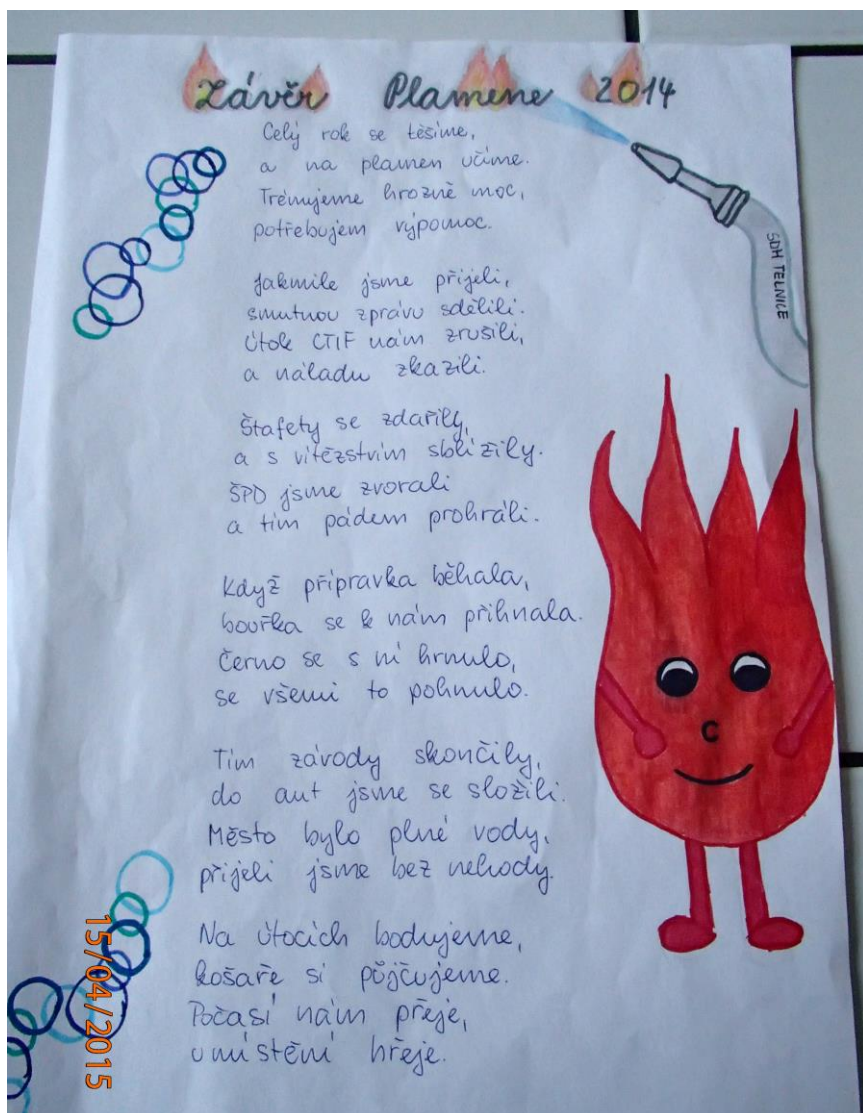 Závěr Plamene 2014
Celý rok se těšíme,
a na plamen učíme.
Trénujeme hrozně moc,
potřebujem výpomoc.
Jakmile jsme přijeli,
smutnou zprávu sdělili.
Útok CTIF nám zrušili,
a náladu zkazili.
Štafety se zdařily,
a s vítězstvím sblížily.
ŠPD jsme zvorali
a tím pádem prohráli.
Když přípravka běhala,
bouřka se k nám přihnala.
Černo se s ní hrnulo,
se všemi to pohnulo.
Tím závody skončily,
do aut jsme se složili.
Město bylo plné vody,
přijeli jsme bez nehody.
Na útocích bodujeme,
košaře si půjčujeme.
Počasí nám přeje,
umístění hřeje.
SDH TELNICE
15/04/2015